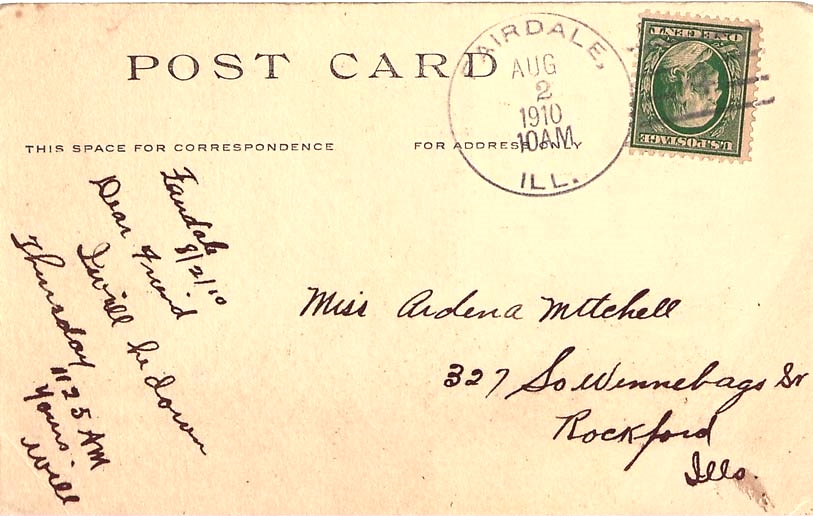 POST CARD
FAIRDALE,
AUG
2
1910
10AM
ILL.
ONE CENT
U.S. POSTAGE
THIS SPACE FOR CORRESPONDENCE
FOR ADDRESS ONLY
Fairdale
8/2/10
Dear Friend
I will be down
Thursday 11 25 AM
Yours.
Will
Miss Ardena Mitchell
327 So Winnebago St
Rockford
Ills.